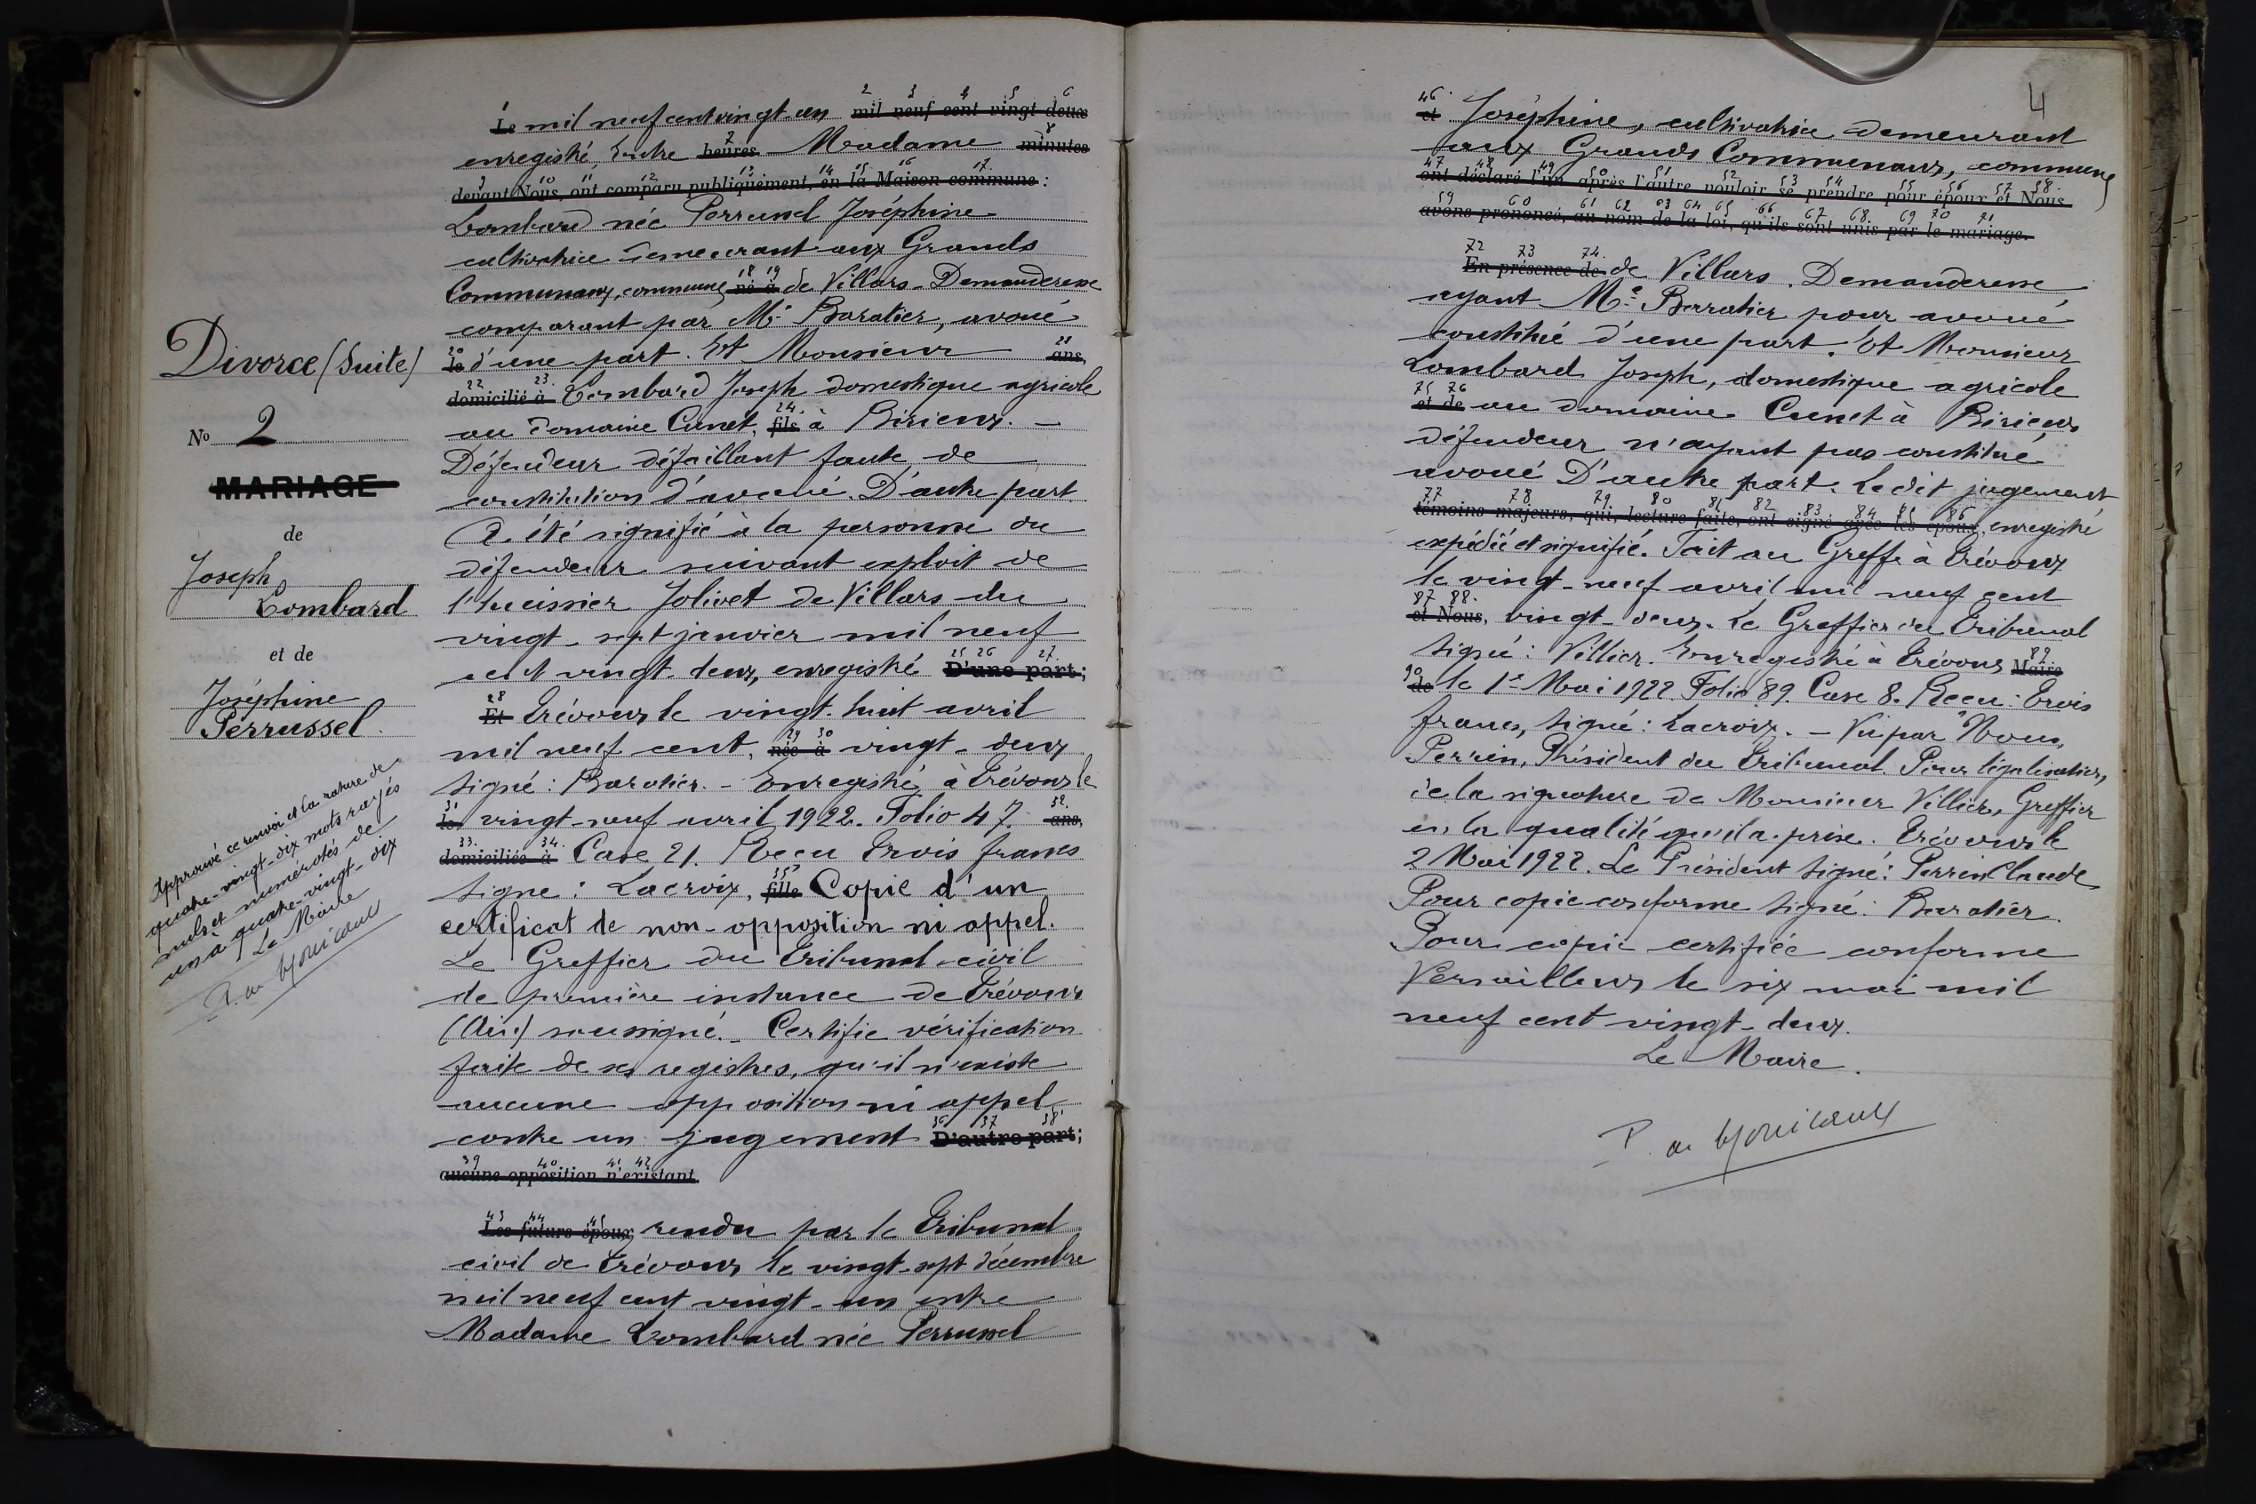 Divorce (Suite)
No 2
MARIAGE
de
Joseph
Lombard
et de
Joséphine
Perrussel.
Approuvé ce renvoi et la rature de
quatre-vingt-dix mots rayés
nuls et numérotés de
un à quatre-vingt-dix
Le Maire
1 2 3 4 5 6
Le mil neuf cent vingt-un mil neuf cent vingt-deux
7 8
enregistré, Entre heures Madame minutes
9 10 11 12 13 14 15 16 17
devant Nous, ont comparu publiquement, en la Maison commune :
Lombard née Perrussel Joséphine
cultivatrice demeurant aux Grands
18 19
Communaux, commune né à de Villars - Demanderesse
comparant par Me Baratier, avoué
20 21
le d'une part. Et Monsieur ans,
22 23
domicilié à Lombard Joseph domestique agricole
24
au domaine Cunet, fils à Birieux. -
Défendeur défaillant faute de
constitution d'avoué. D'autre part
A été signifié à la personne du
défendeur suivant exploit de
l'huissier Jolivet de Villars du
vingt-sept janvier mil neuf
25 26 27
cent vingt-deux, enregistré D'une part;
28
Et Trévoux le vingt-huit avril
29 30
mil neuf cent, née à vingt-deux
Signé : Baratier. - Enregistré à Trévoux le
31 32
le vingt-neuf avril 1922. Folio 47. ans,
33 34
domiciliée à Case 21. Reçu trois francs
35
Signé : Lacroix, fille Copie d'un
certificat de non-opposition ni appel.
Le Greffier du Tribunal civil
de première instance de Trévoux
(Ain) soussigné. - Certifie vérification
faite de ses registres, qu'il n'existe
aucune opposition ni appel
36 37 38
contre un jugement D'autre part;
39 40 41 42
aucune opposition n'existant
43 44 45
Les futurs époux rendu par le Tribunal
civil de Trévoux le vingt-sept décembre
mil neuf cent vingt-un entre
Madame Lombard née Perrussel
4
46
et Joséphine, cultivatrice demeurant
aux Grands Communaux, commune
47 48 49 50 51 52 53 54 55 56 57 58
ont déclaré l'un après l'autre vouloir se prendre pour époux et Nous
59 60 61 62 63 64 65 66 67 68 69 70 71
avons prononcé, au nom de la loi, qu'ils sont unis par le mariage.
72 73 74
En présence de de Villars. Demanderesse
ayant Me Barratier pour avoué
constitué d'une part. Et Monsieur
Lombard Joseph, domestique agricole
75 76
et de au domaine Cunet à Birieux
défendeur n'ayant pas constitué
avoué D'autre part. Ledit jugement
77 78 79 80 81 82 83 84 85 86
témoins majeurs, qui, lecture faite, ont signé avec les époux, enregistré
expédié et signifié. Fait au Greffe à Trévoux
le vingt-neuf avril mil neuf cent
87 88
et Nous, vingt-deux. Le Greffier du Tribunal
89
Signé : Villier. Enregistré à Trévoux Maire
90
de le 1er Mai 1922 Folio 89. Case 8. Reçu : Trois
francs, Signé : Lacroix. - Vu par Nous,
Perrin, Président du Tribunal. Pour légalisation,
de la signature de Monsieur Villier, Greffier
en la qualité qu'il a prise. Trévoux le
2 Mai 1922. Le Président Signé : Perrin Claude
Pour copie conforme Signé : Baratier.
Pour copie certifiée conforme
Versailleux le six mai mil
neuf cent vingt-deux.
Le Maire.